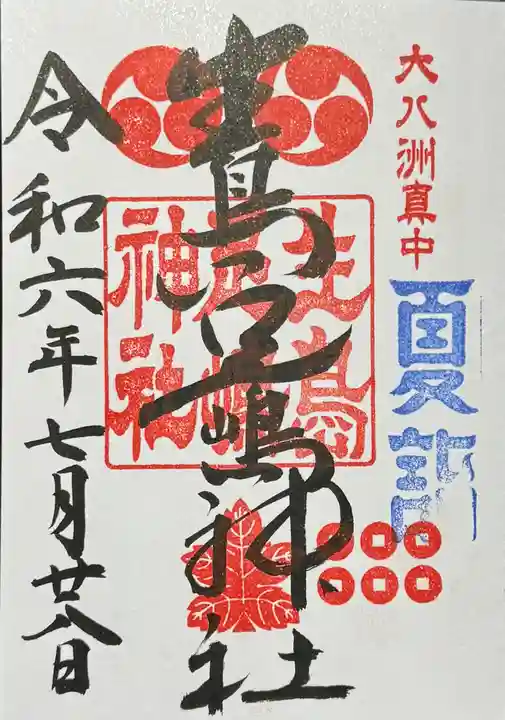 大八洲真中
夏詣
生島足島神社
生島
足嶋
神社
令和六年七月廿八日